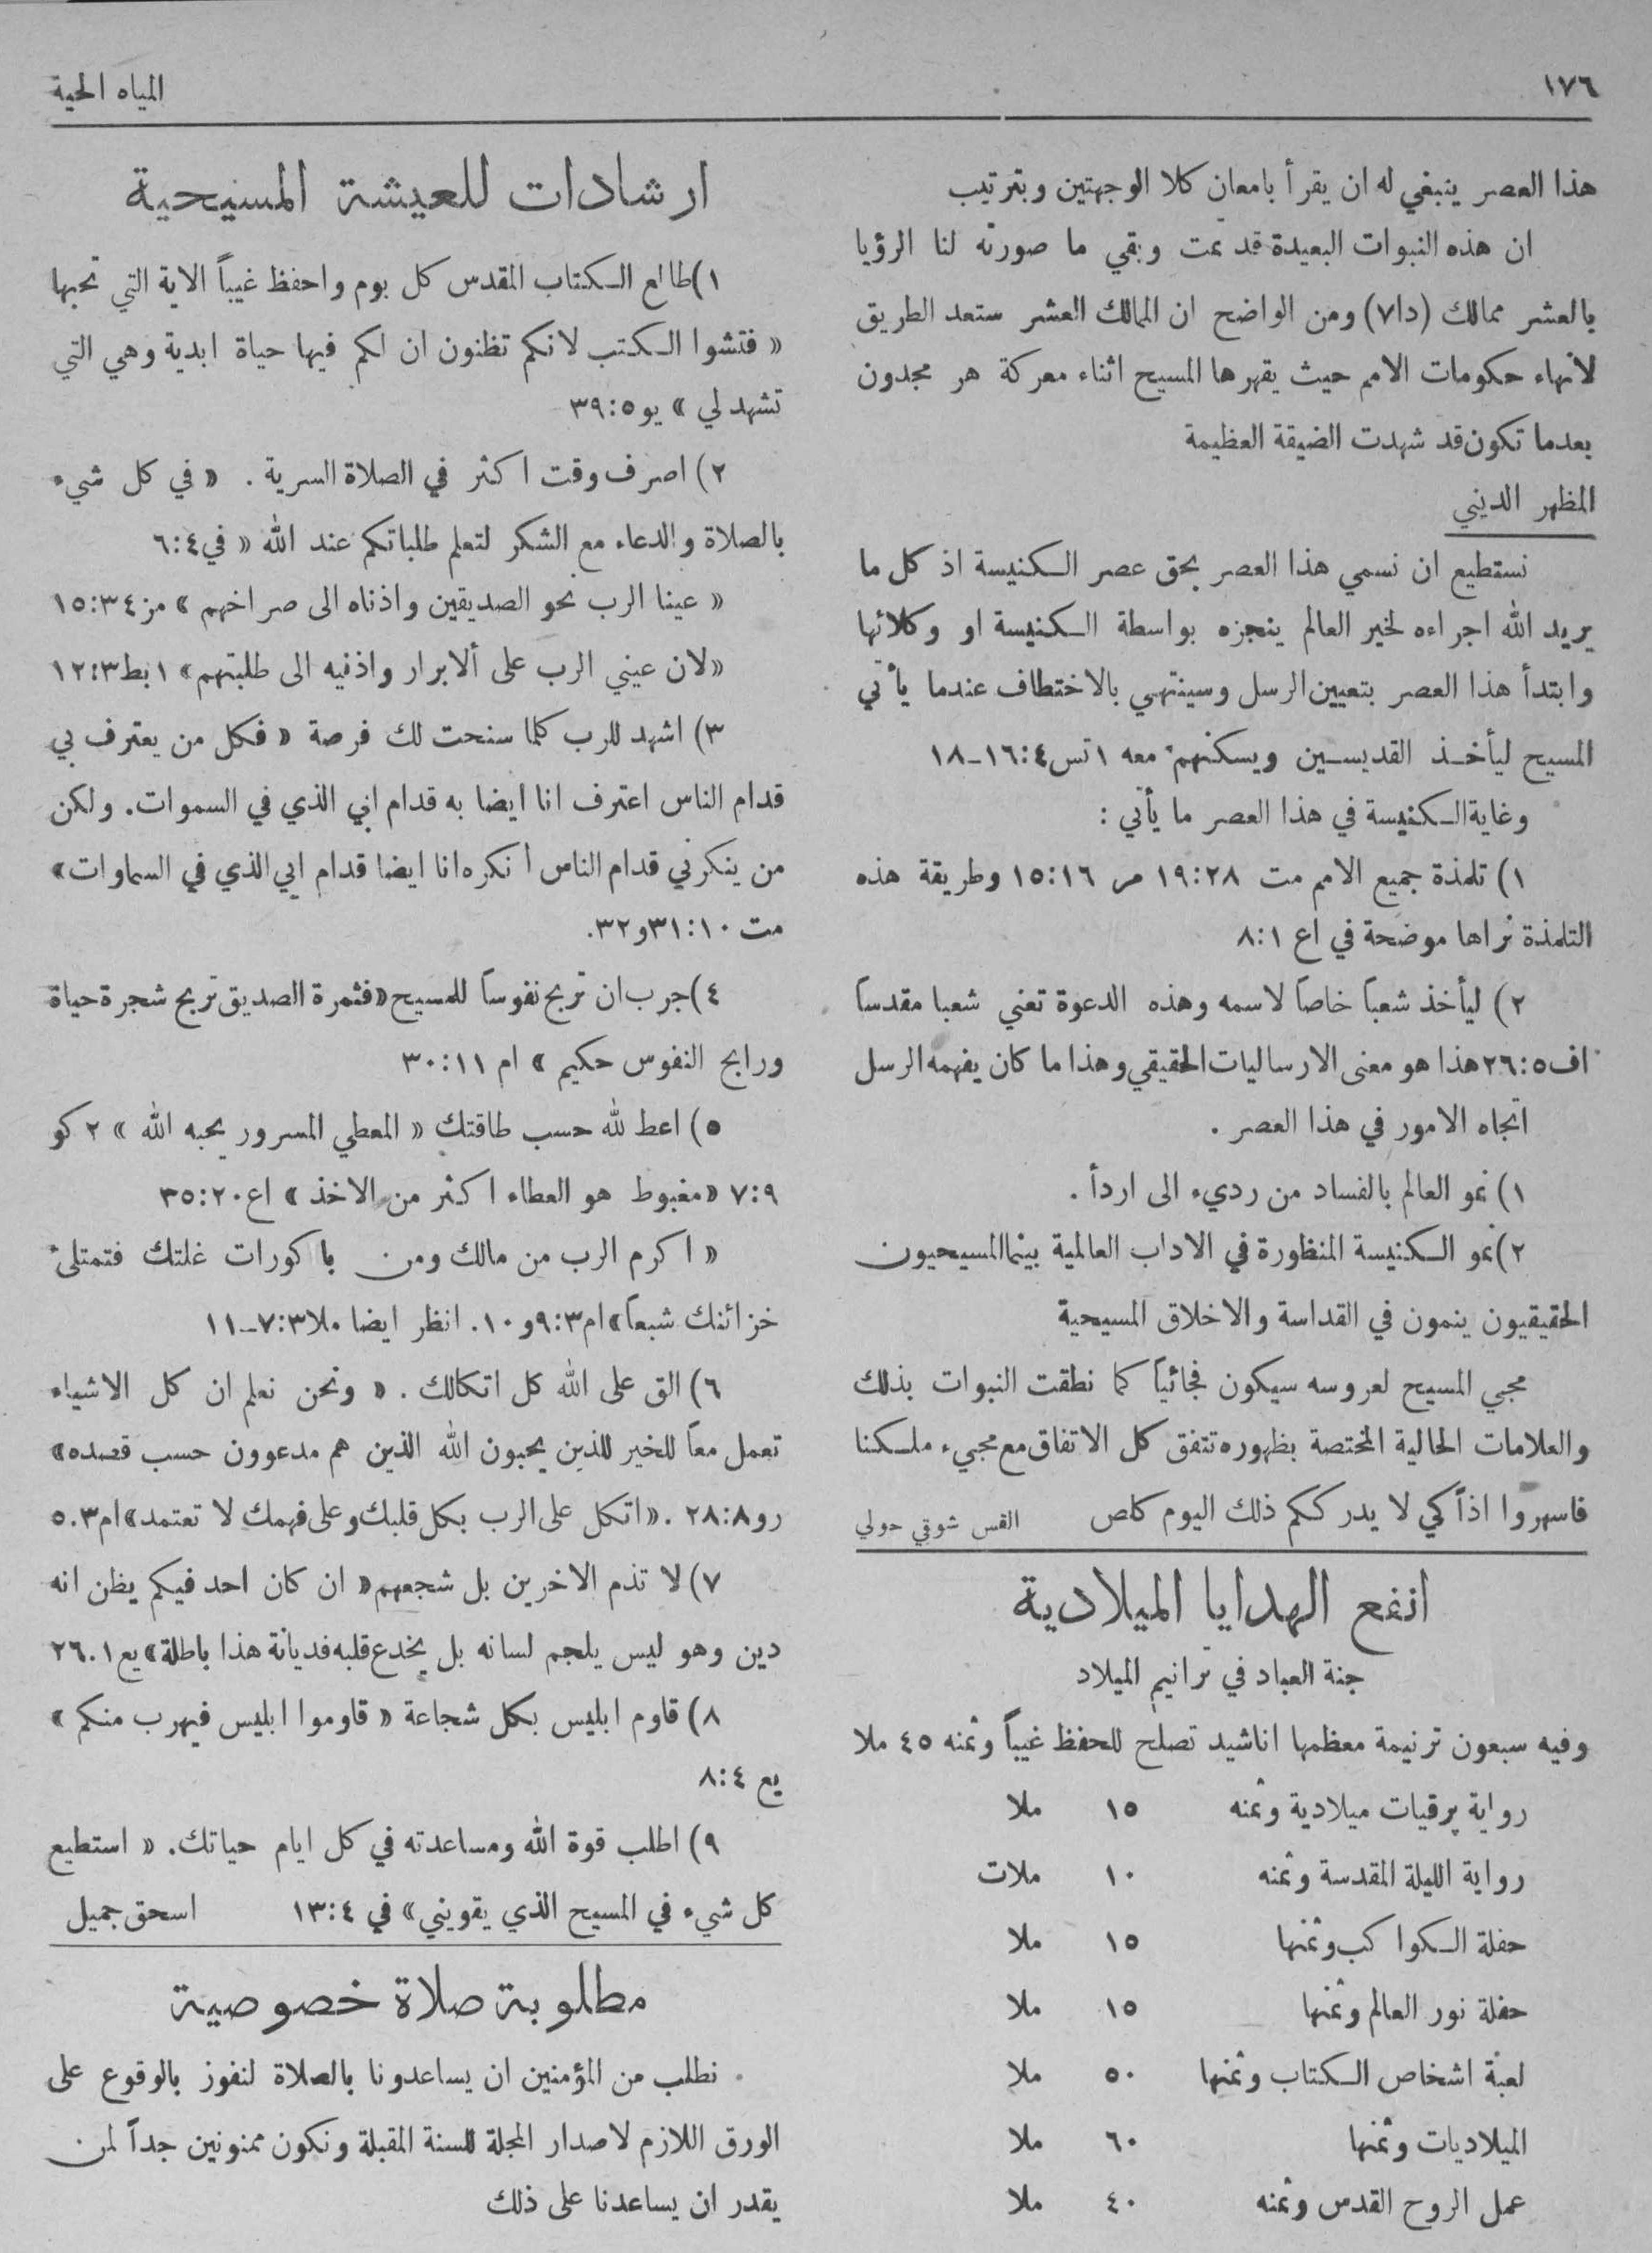 ١٧٦
المياه الحية
هذا العصر ينبغي له ان يقرأ بامعان كلا الوجهتين وبترتيب
ان هذه النبوات البعيدة قد تمت وبقي ما صورته لنا الرؤيا
بالعشر ممالك (دا٧) ومن الواضح ان الممالك العشر ستعد الطريق
لانهاء حكومات الامم حيث يقهرها المسيح اثناء معركة هر مجدون
بعدما تكون قد شهدت الضيقة العظيمة
المظهر الديني
نستطيع ان نسمي هذا العصر بحق عصر الكنيسة اذ كل ما
يريد الله اجراءه لخير العالم ينجزه بواسطة الكنيسة او وكلائها
وابتدأ هذا العصر بتعيين الرسل وسينتهي بالاختطاف عندما يأتي
المسيح ليأخذ القديسين ويسكنهم معه ١تس٤:١٦-١٨
وغاية الكنيسة في هذا العصر ما يأتي :
١) تلمذة جميع الامم مت ٢٨:١٩ مر ١٦:١٥ وطريقة هذه
التلمذة نراها موضحة في اع ١:٨
٢) ليأخذ شعباً خاصاً لاسمه وهذه الدعوة تعني شعبا مقدساً
اف٥:٢٦ هذا هو معنى الارساليات الحقيقي وهذا ما كان يفهمه الرسل
اتجاه الامور في هذا العصر .
١) نمو العالم بالفساد من رديء الى اردأ .
٢) نمو الكنيسة المنظورة في الاداب العالمية بينما المسيحيون
الحقيقيون ينمون في القداسة والاخلاق المسيحية
مجي المسيح لعروسه سيكون فجائياً كما نطقت النبوات بذلك
والعلامات الحالية المختصة بظهوره تتفق كل الاتفاق مع مجيء ملكنا
فاسهروا اذاً كي لا يدرككم ذلك اليوم كلص القس شوقي حولي
انفع الهدايا الميلادية
جنة العباد في ترانيم الميلاد
وفيه سبعون ترنيمة معظمها اناشيد تصلح للحفظ غيباً وثمنه ٤٥ ملا
رواية برقيات ميلادية وثمنه ١٥ ملا
رواية الليلة المقدسة وثمنه ١٠ ملات
حفلة الكواكب وثمنها ١٥ ملا
حفلة نور العالم وثمنها ١٥ ملا
لعبة اشخاص الكتاب وثمنها ٥٠ ملا
الميلاديات وثمنها ٦٠ ملا
عمل الروح القدس وثمنه ٤٠ ملا
ارشادات للعيشة المسيحية
١) طالع الكتاب المقدس كل يوم واحفظ غيباً الاية التي تحبها
« فتشوا الكتب لانكم تظنون ان لكم فيها حياة ابدية وهي التي
تشهد لي » يو٥:٣٩
٢) اصرف وقت اكثر في الصلاة السرية . « في كل شيء
بالصلاة والدعاء مع الشكر لتعلم طلباتكم عند الله « في٤:٦
« عينا الرب نحو الصديقين واذناه الى صراخهم » مز٣٤:١٥
«لان عيني الرب على ألابرار واذنيه الى طلبتهم» ١بط٣:١٢
٣) اشهد للرب كلما سنحت لك فرصة « فكل من يعترف بي
قدام الناس اعترف انا ايضا به قدام ابي الذي في السموات. ولكن
من ينكرني قدام الناس انكره انا ايضا قدام ابي الذي في السماوات»
مت ١٠:٣١و٣٢.
٤) جرب ان تربح نفوساً للمسيح «فثمرة الصديق تربح شجرة حياة
ورابح النفوس حكيم » ام ١١:٣٠
٥) اعط لله حسب طاقتك « المعطي المسرور يحبه الله » ٢ كو
٩:٧ «مغبوط هو العطاء اكثر من الاخذ » اع٢٠:٣٥
« اكرم الرب من مالك ومن باكورات غلتك فتمتلئ
خزائنك شبعاً» ام٣:٩و١٠. انظر ايضا ملا٣:٧-١١
٦) الق على الله كل اتكالك . « ونحن نعلم ان كل الاشياء
تعمل معاً للخير للذين يحبون الله الذين هم مدعوون حسب قصده»
رو٨:٢٨ . «اتكل على الرب بكل قلبك وعلى فهمك لا تعتمد» ام٣.٥
٧) لا تذم الاخرين بل شجعهم« ان كان احد فيكم يظن انه
دين وهو ليس يلجم لسانه بل يخدع قلبه فديانة هذا باطلة» يع١.٢٦
٨) قاوم ابليس بكل شجاعة « قاوموا ابليس فيهرب منكم »
يع ٤:٨
٩) اطلب قوة الله ومساعدته في كل ايام حياتك. « استطيع
كل شيء في المسيح الذي يقويني» في ٤:١٣ اسحق جميل
مطلوبة صلاة خصوصية
نطلب من المؤمنين ان يساعدونا بالصلاة لنفوز بالوقوع على
الورق اللازم لاصدار المجلة للسنة المقبلة ونكون ممنونين جداً لمن
يقدر ان يساعدنا على ذلك